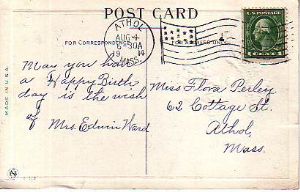 POST CARD
FOR CORRESPONDENCE
ATHOL
AUG 4
30A
19 14
MASS.
May you have
a Happy Birth
day is the wish
of Mrs Edwin Ward
Miss Flora Perley
62 Cottage St.
Athol,
Mass.
MADE IN U.S.A.